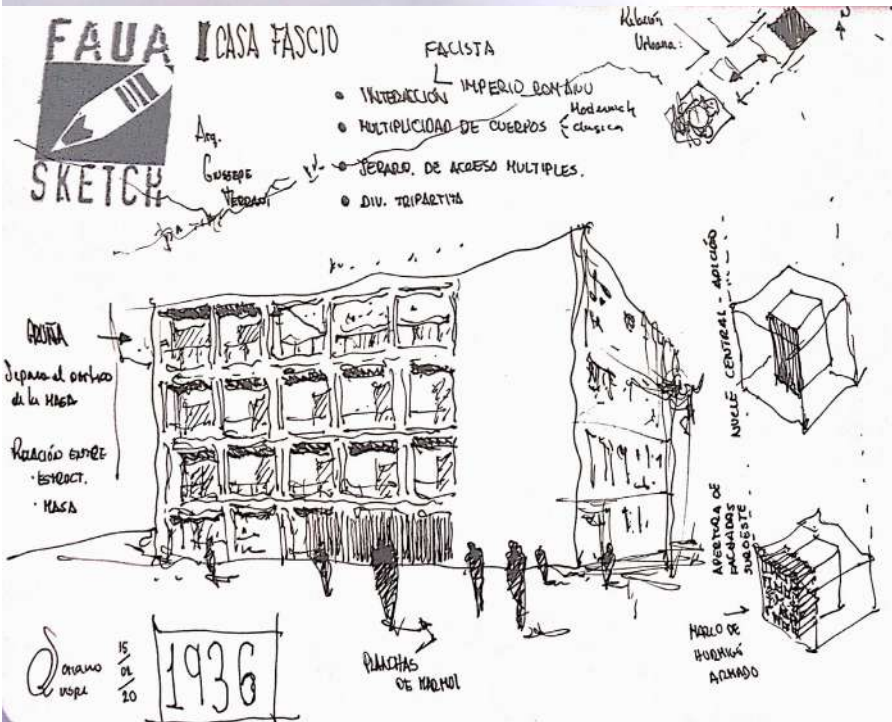 FAUA
SKETCH
CASA FASCIO
Arq.
GIUSEPE
TERRANI
FACISTA
IMPERIO ROMANO
• INTERACCIÓN
• MULTIPLICIDAD DE CUERPOS
Modernidad
clasica
• JERARQ. DE ACCESO MULTIPLES.
• DIV. TRIPARTITA
Relación
Urbana:
N
Separa el portico
de la MASA
RELACIÓN ENTRE
• ESTRUCT.
• MASA
NUCLÉ CENTRAL - ADICIÓN
APERTURA DE
FACHADAS
SUROESTE
MARCO DE
HORMIGÓ
ARMADO
PLANCHAS
DE MARMOL
1936
15
01
20